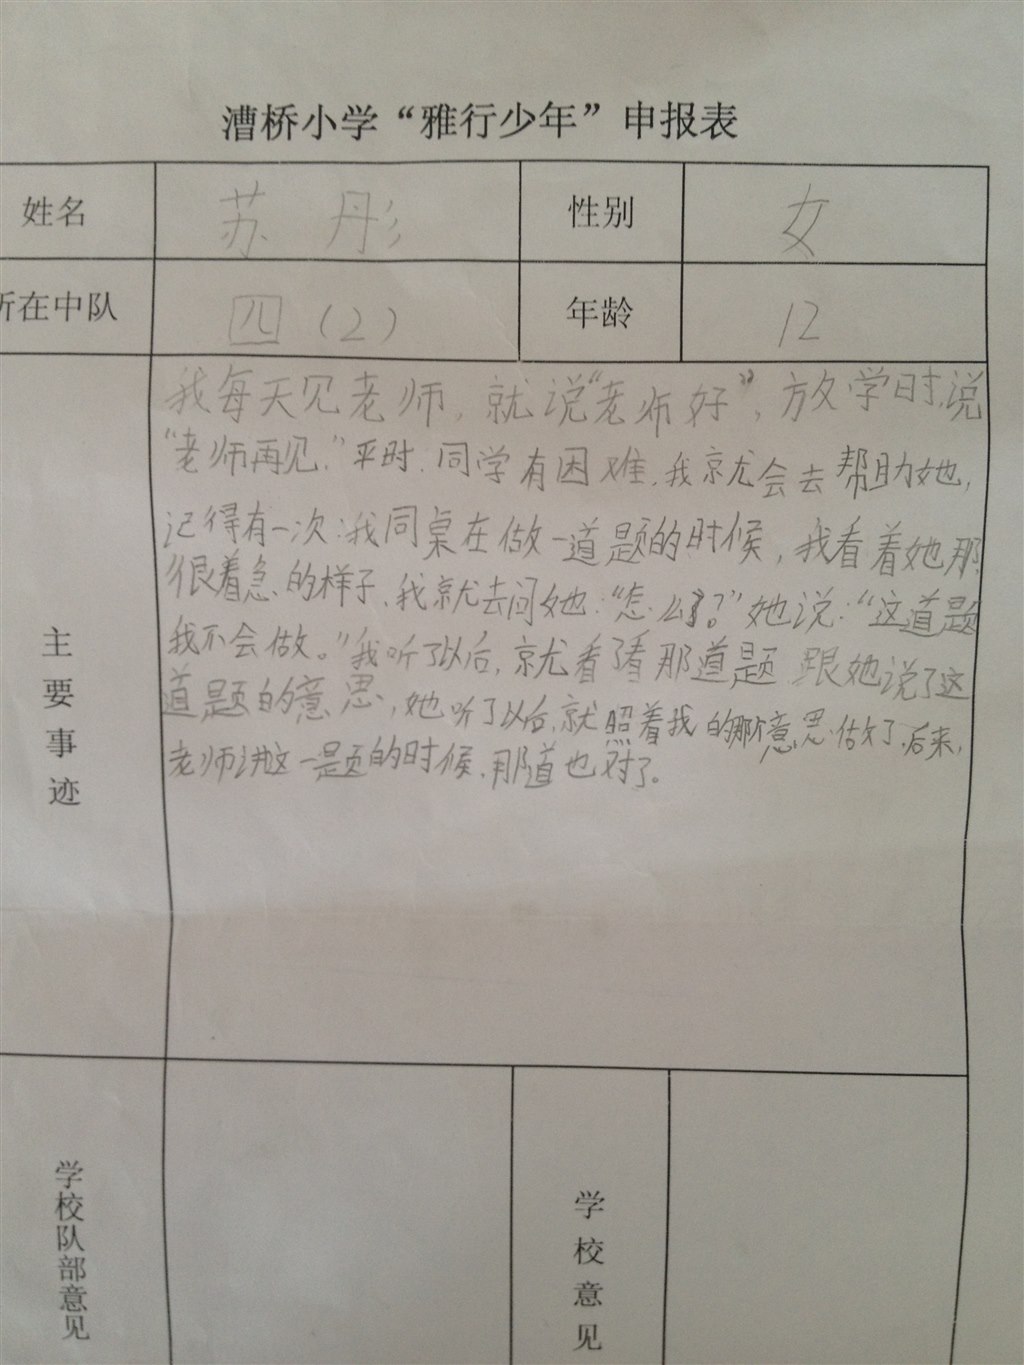 漕桥小学“雅行少年”申报表
姓名 苏彤 性别 女
所在中队 四（2） 年龄 12
主要事迹
我每天见老师，就说“老师好”，放学时，说
“老师再见。”平时，同学有困难，我就会去帮助她，
记得有一次：我同桌在做一道题的时候，我看着她那
很着急的样子，我就去问她：“怎么了？”她说：“这道题
我不会做。”我听了以后，就看了看那道题，跟她说了这
道题的意思，她听了以后，就照着我的那个意思做了，后来，
老师讲这一题的时候，那道也对了。
学校队部意见 学校意见